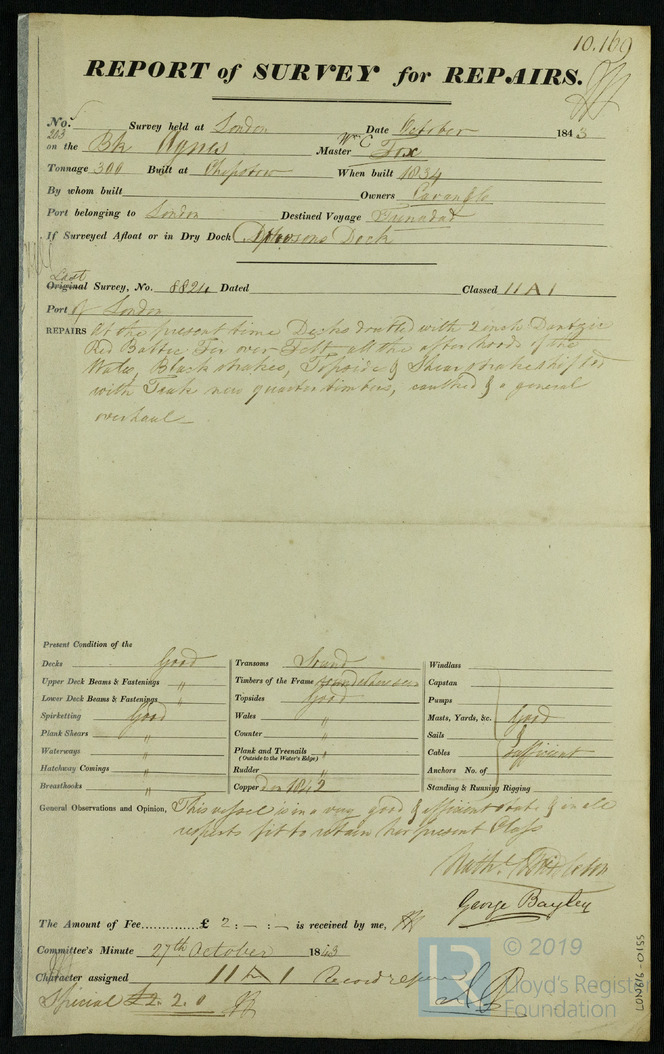 10.169
REPORT of SURVEY for REPAIRS.
No. 203 Survey held at London Date October 1843
on the Bk Agnes Master Wm C Fox
Tonnage 300 Built at Chepstow When built 1834
By whom built Owners
Port belonging to London Destined Voyage Trinadad
If Surveyed Afloat or in Dry Dock Dock
Last
Original Survey, No. 8824 Dated Classed 11 A 1
Port of London
REPAIRS at the present time Decks doubled with 2 inch Dantzic
Red Baltic Fir over Felt all the after hoods of the
Wales, Blackstrakes, Topside & Shearstrake shifted
with Teak new quarter timbers, caulked & a general
overhaul
Present Condition of the
Decks Good
Upper Deck Beams & Fastenings "
Lower Deck Beams & Fastenings "
Spirketting Good
Plank Shears "
Waterways "
Hatchway Comings "
Breasthooks "
Transoms Sound
Timbers of the Frame sound where seen
Topsides Good
Wales "
Counter "
Plank and Treenails "
(Outside to the Water's Edge)
Rudder "
Copper 1842
Windlass
Capstan
Pumps
Masts, Yards, &c. Good
Sails &
Cables Sufficient
Anchors No. of
Standing & Running Rigging
General Observations and Opinion, This vessel is in a very good & efficient state & in all
respects fit to retain her present Class
Nathl Middleton
George Bayley
The Amount of Fee £ 2 : - : - is received by me,
Committee's Minute 27th October 1843
Character assigned 11 A 1
Special £2. 2. 0
© 2019
Lloyd's Register
Foundation
LON616-0155